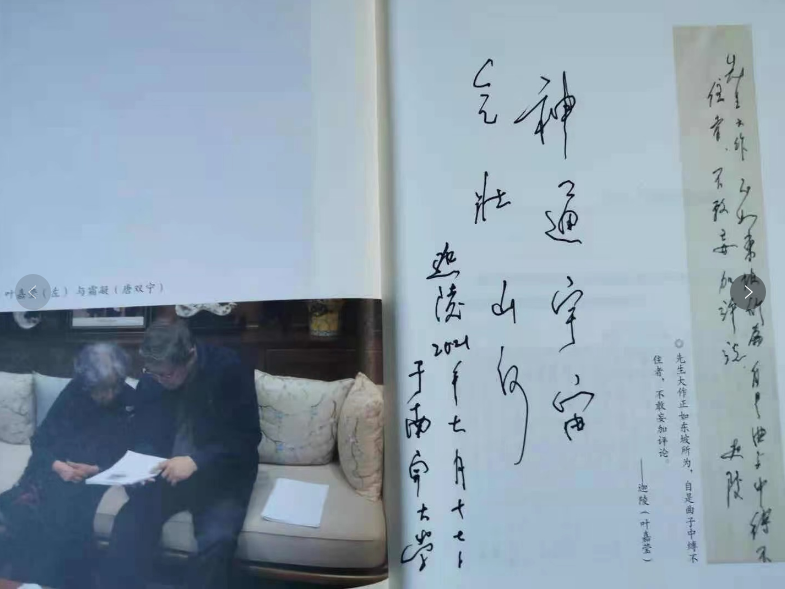 叶嘉莹（左）与霜凝（唐双宁）
先生大作正如東坡所為自是曲子中縛不
住者，不敢妄加評論
迦陵
◎先生大作正如东坡所为，自是曲子中缚不
住者，不敢妄加评论。
——迦陵（叶嘉莹）
神通宇宙
气壮山河
迦陵2021年七月十七日
于南开大学